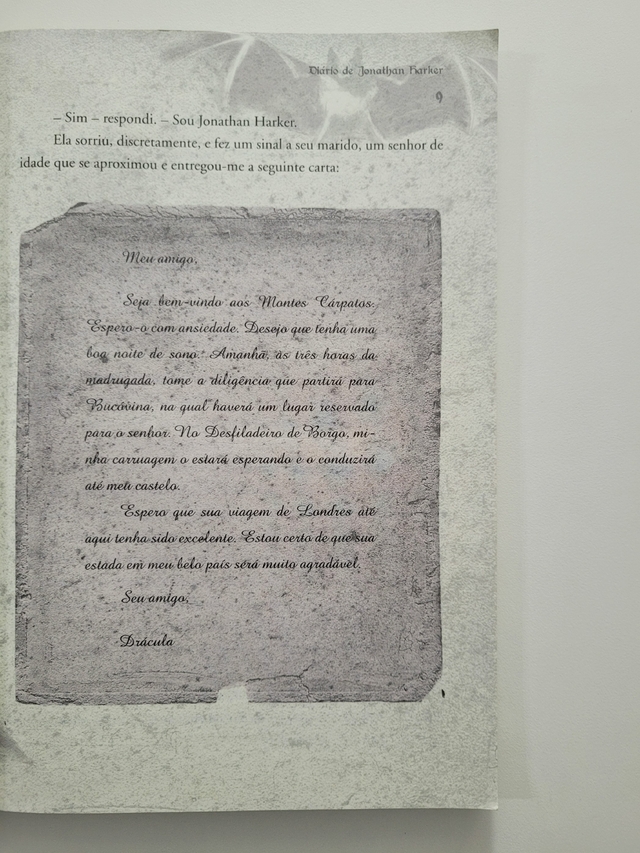 Diário de Jonathan Harker
9
– Sim – respondi. – Sou Jonathan Harker.
Ela sorriu, discretamente, e fez um sinal a seu marido, um senhor de
idade que se aproximou e entregou-me a seguinte carta:
Meu amigo,
Seja bem-vindo aos Montes Cárpatos.
Espero-o com ansiedade. Desejo que tenha uma
boa noite de sono. Amanhã, às três horas da
madrugada, tome a diligência que partirá para
Bucóvina, na qual haverá um lugar reservado
para o senhor. No Desfiladeiro de Borgo, mi-
nha carruagem o estará esperando e o conduzirá
até meu castelo.
Espero que sua viagem de Londres até
aqui tenha sido excelente. Estou certo de que sua
estada em meu belo país será muito agradável.
Seu amigo,
Drácula